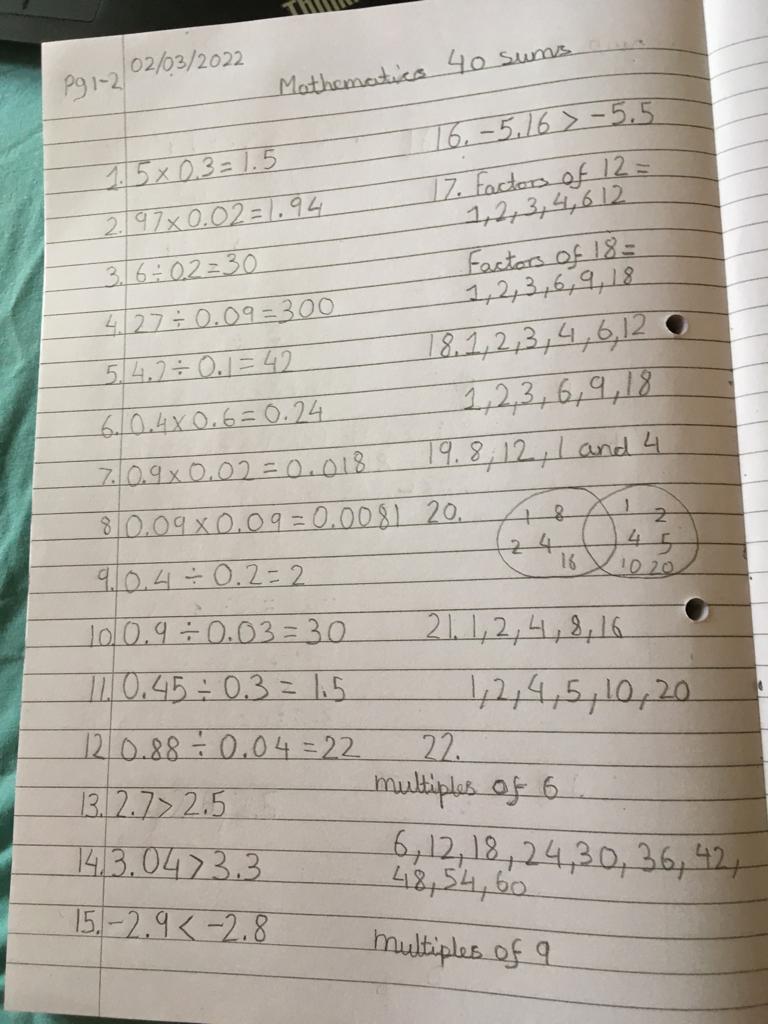 Think
Pg 1-2
02/03/2022
Mathematics 40 sums
1. 5 × 0.3 = 1.5
2. 97 × 0.02 = 1.94
3. 6 ÷ 0.2 = 30
4. 27 ÷ 0.09 = 300
5. 4.2 ÷ 0.1 = 42
6. 0.4 × 0.6 = 0.24
7. 0.9 × 0.02 = 0.018
8 0.09 × 0.09 = 0.0081
9. 0.4 ÷ 0.2 = 2
10 0.9 ÷ 0.03 = 30
11. 0.45 ÷ 0.3 = 1.5
12 0.88 ÷ 0.04 = 22
13. 2.7 > 2.5
14. 3.04 > 3.3
15. -2.9 < -2.8
16. -5.16 > -5.5
17. Factors of 12 =
1, 2, 3, 4, 6 12
Factors of 18 =
1, 2, 3, 6, 9, 18
18. 1, 2, 3, 4, 6, 12
1, 2, 3, 6, 9, 18
19. 8, 12, 1 and 4
20.
1 8 1 2
2 4 4 5
16 10 20
21. 1, 2, 4, 8, 16
1, 2, 4, 5, 10, 20
22.
multiples of 6
6, 12, 18, 24, 30, 36, 42,
48, 54, 60
multiples of 9